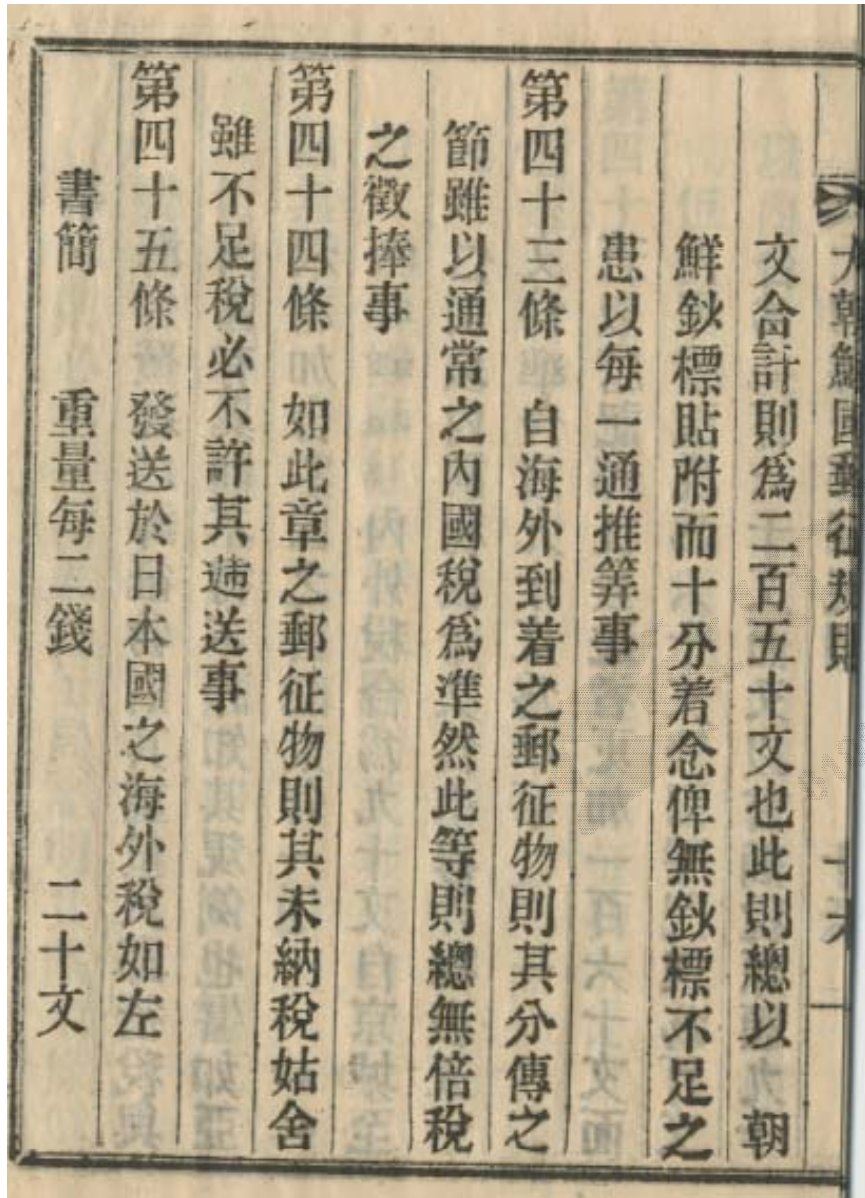 大朝鮮國郵征規則 十六
文合計則爲二百五十文也此則總以 朝
鮮鈥標貼附而十分着念俾無鈥標不足之
患以每一通推筭事
第四十三條 自海外到着之郵征物則其分傳之
節雖以通常之內國稅爲準然此等則總無倍稅
之徵捧事
第四十四條 如此章之郵征物則其未納稅姑舍
雖不足稅必不許其遞送事
第四十五條 發送於日本國之海外稅如左
書簡 重量每二錢 二十文